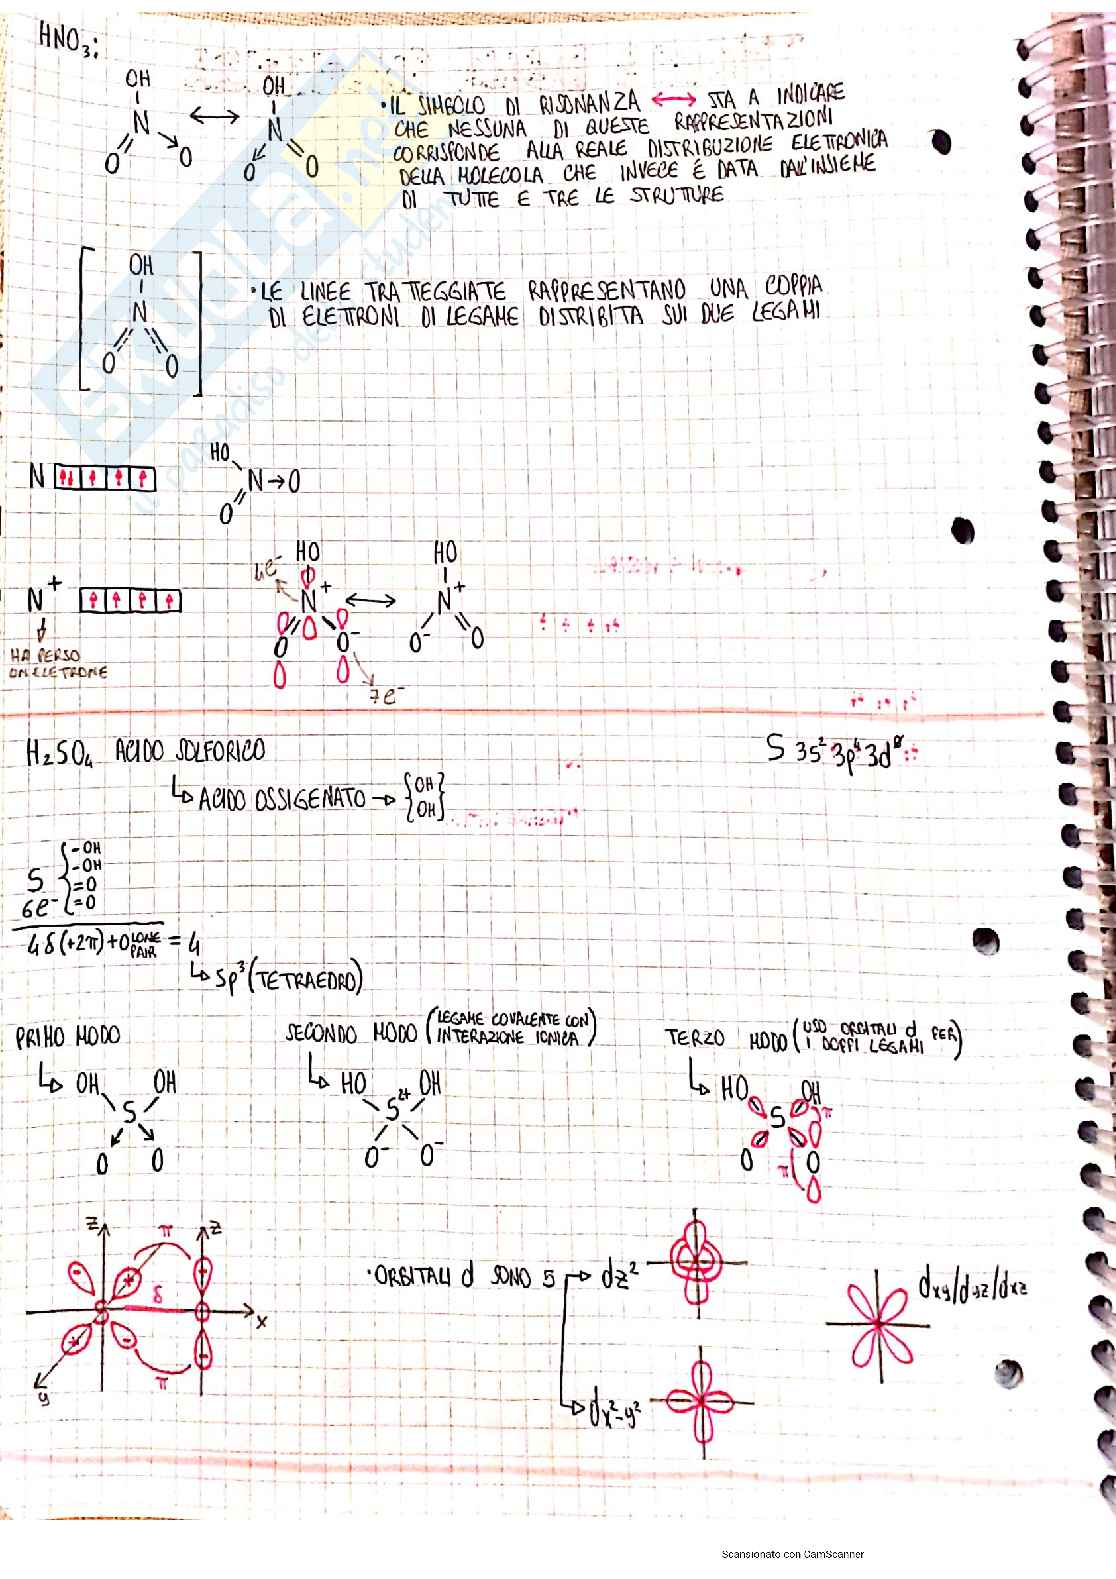 HNO3:
OH OH
N ↔ N
O O O O
• IL SIMBOLO DI RISONANZA ↔ STA A INDICARE
CHE NESSUNA DI QUESTE RAPPRESENTAZIONI
CORRISPONDE ALLA REALE DISTRIBUZIONE ELETTRONICA
DELLA MOLECOLA CHE INVECE È DATA DALL'INSIEME
DI TUTTE E TRE LE STRUTTURE
OH
N
O O
• LE LINEE TRATTEGGIATE RAPPRESENTANO UNA COPPIA
DI ELETTRONI DI LEGAME DISTRIBITA SUI DUE LEGAMI
HO
N N→O
O
4e- HO HO
N+ N+ ↔ N+
O O- O- O
HA PERSO
UN ELETRONE
7e-
H2SO4 ACIDO SOLFORICO S 3s² 3p⁴ 3d⁰
↳ ACIDO OSSIGENATO → {OH
OH}
-OH
-OH
S =O
6e- =O
4δ(+2π)+0 LONE PAIR = 4
↳ sp³ (TETRAEDRO)
PRIMO MODO
↳ OH OH
S
O O
SECONDO MODO (LEGAME COVALENTE CON
INTERAZIONE IONICA)
↳ HO OH
S2+
O- O-
TERZO MODO (USO ORBITALI d PER
I DOPPI LEGAMI)
↳ HO OH
S π
O π O
z π z
δ
x
y π
• ORBITALI d SONO 5 → dz²
dx²-y²
dxy/dyz/dxz
Scansionato con CamScanner